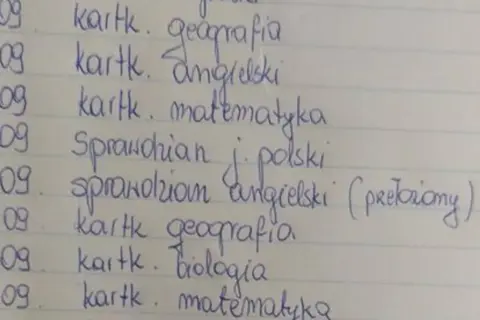 09 kartk. geografia
09 kartk. angielski
09 kartk. matematyka
09 Sprawdzian j. polski
09. sprawdzian angielski (przełożony)
09 kartk geografia
09. kartk. biologia
09. kartk. matematyka